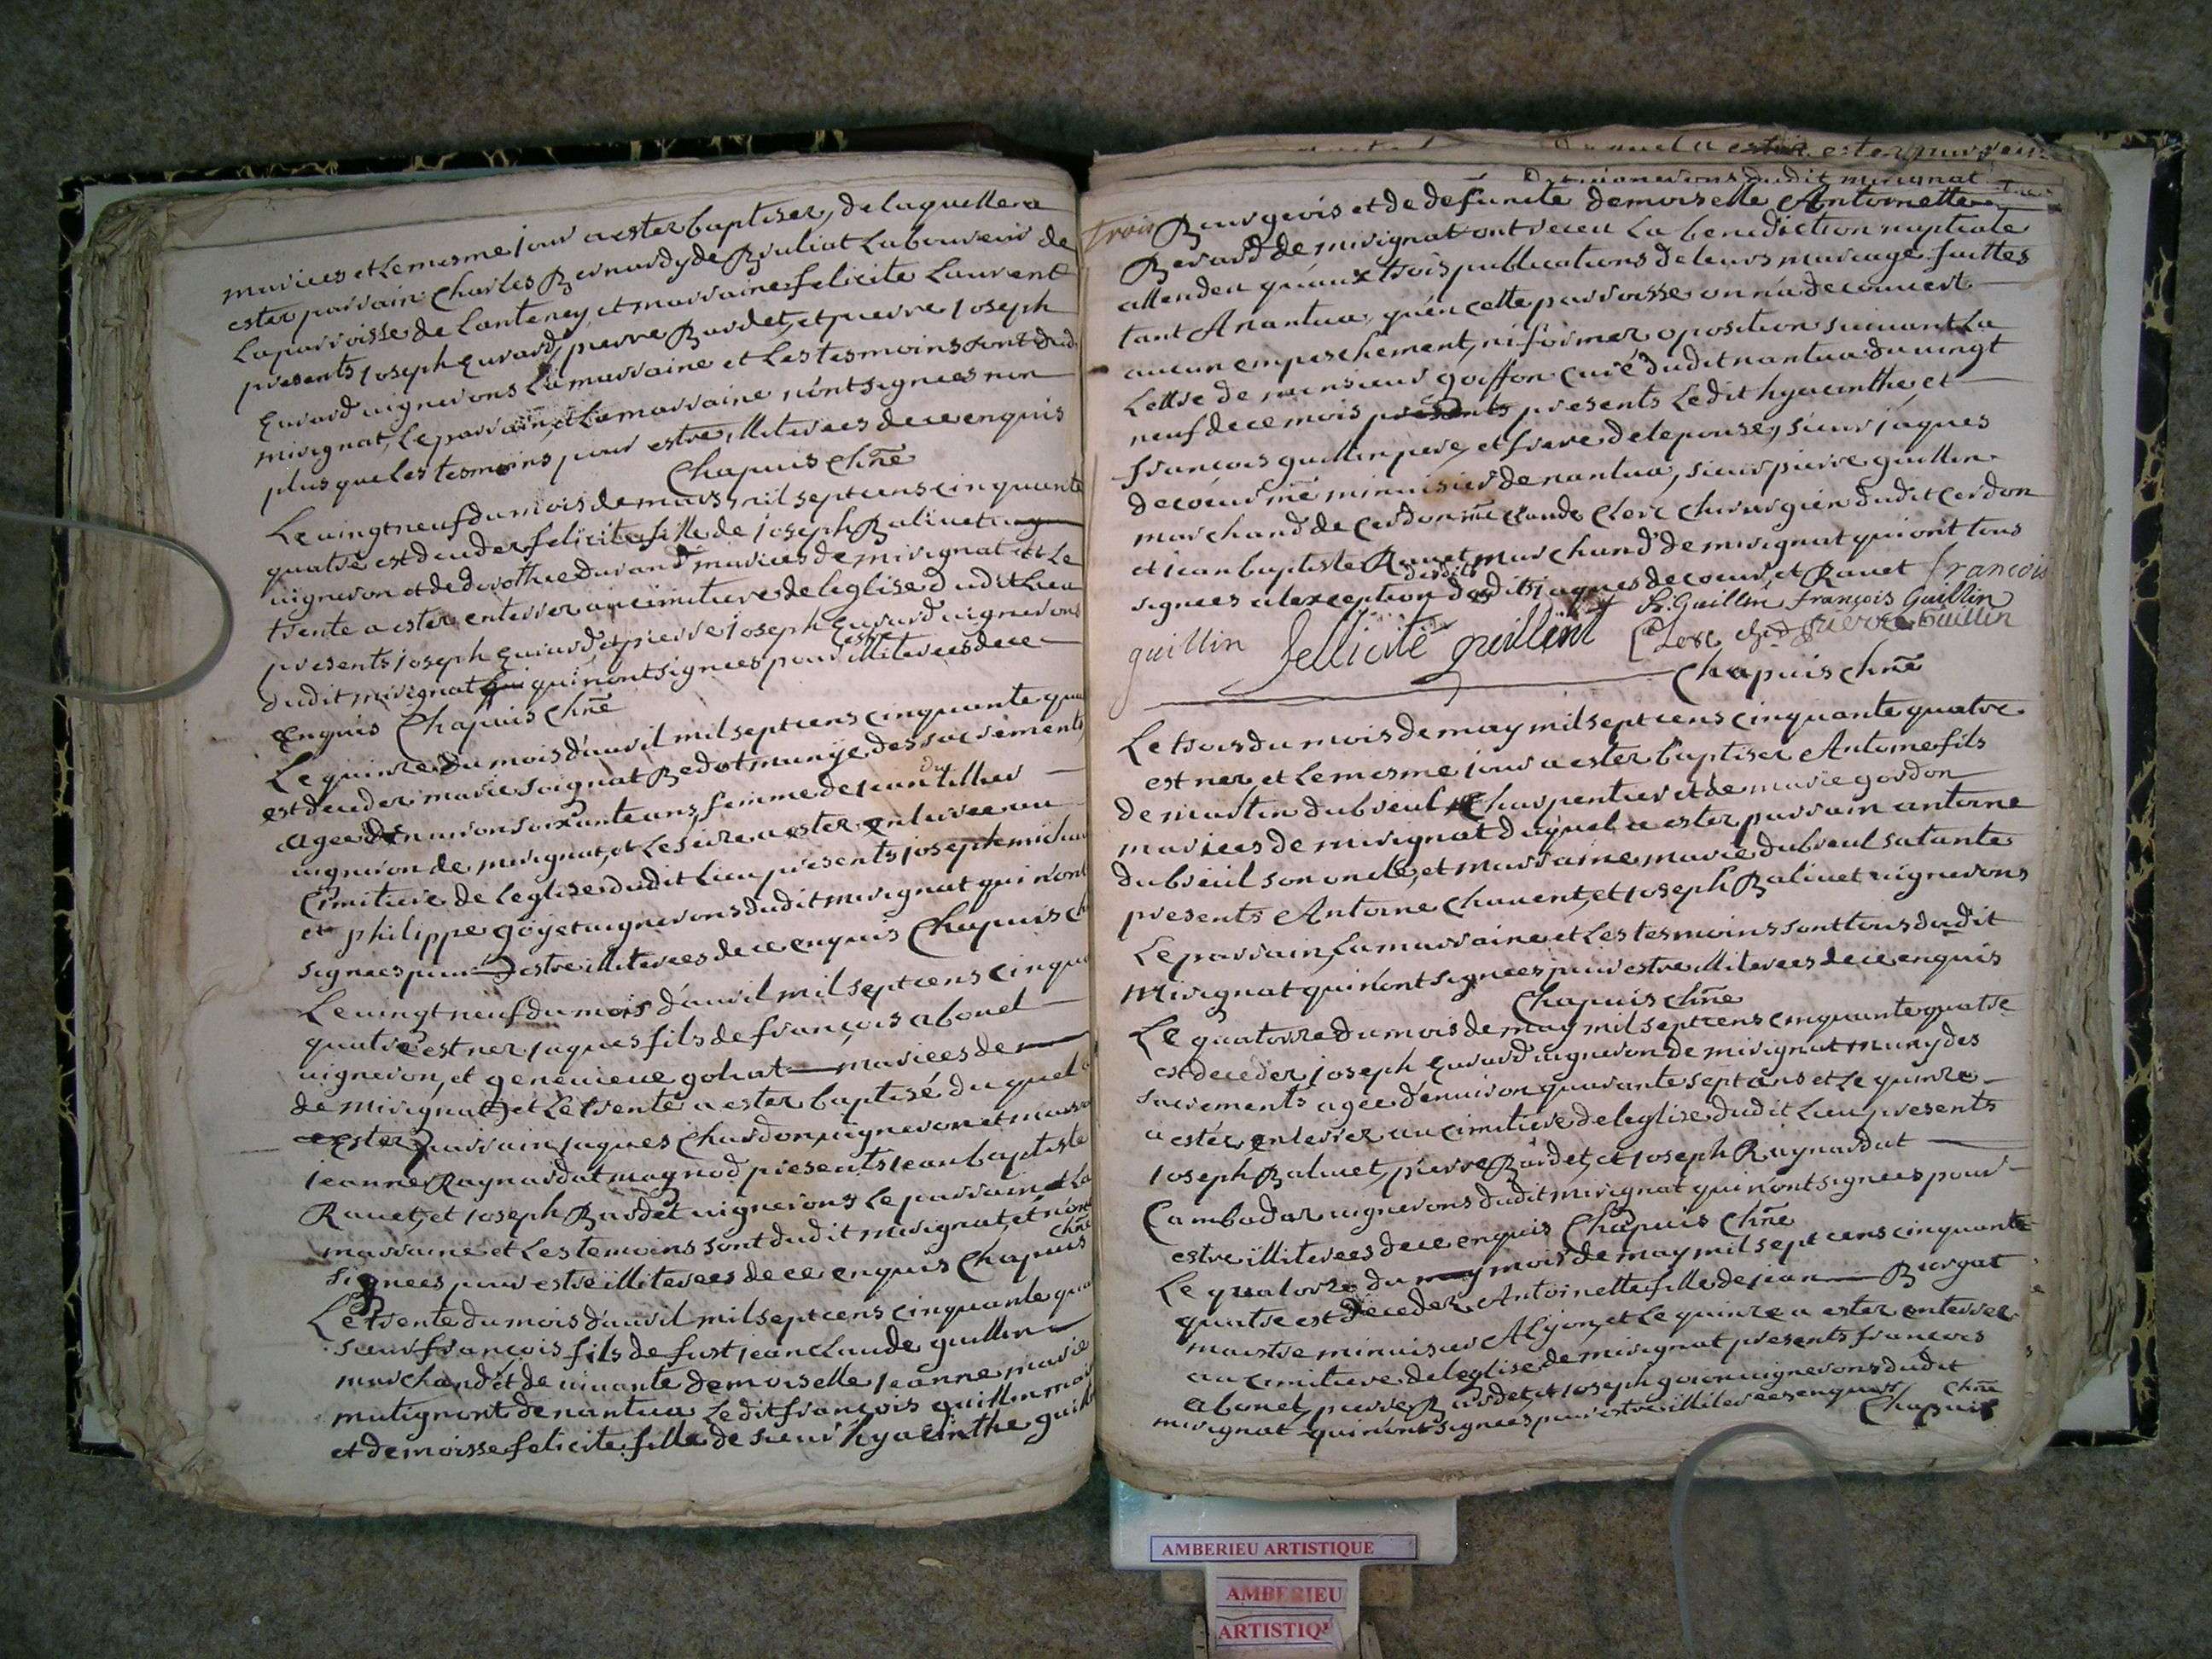 mariees et le mesme jour a ester baptiser, de laquelle a
ester parrain Charles Bernardy de Bruliat laboureur de
la parroisse de Lanteney, et marraine felicite Laurent
presents Joseph Euvrard, pierre Bardet, et pierre Joseph
Euvrard vignerons la marraine et les tesmoins sont dud
mirignat, le parrain, et la marraine n'ont signees non
plus que les tesmoins pour estre illiterees de ce enquis
Chapuis chne
Le vingt neuf du mois de mars mil sept cens cinquante
quatre est deceder felicite fille de Joseph Balivet
vigneron et de dorothee durand mariees de mirignat et le
trente a ester enterrer au cimitiere de leglise dudit lieu
presents Joseph Euvrard et pierre Joseph Euvrard vignerons
dudit mirignat qui n'ont signees pour estre illiterees de ce
enquis Chapuis chne
Le quinze du mois d'avril mil sept cens cinquante qua
est deceder marie soignat Bedot munye des sacrements
agee d'environ soixante ans, femme de jean du tillier
vigneron de mirignat, et le seize a ester enterree au
Cimitiere de leglise dudit lieu presents joseph michau
et philippe goyet vignerons dudit mirignat qui n'ont
signees pour estre illiterees de ce enquis Chapuis ch
Le vingt neuf du mois d'avril mil sept cens cinqua
quatre est ner jaques fils de françois abonel
vigneron, et genevieve gohat mariees de
de mirignat, et le trente a ester baptisé duquel a
ester parrain jaques Chardon vigneron et marr
jeanne Raynardat magnod presents jean baptiste
Ravet, et Joseph Bardet vignerons le parrain et la
marraine et les temoins sont dudit mirignat, et n'ont
signees pour estre illiterees de ce enquis Chapuis chne
Le trente du mois d'avril mil sept cens cinquante qua
sieur françois fils de fust jean claude guillin
marchand et de vivante demoiselle jeanne marie
matignont de nantua ledit françois guillin mar
et demoisse felicite fille de sieur hyacinthe guill
trois Bourgeois et de defuncte demoiselle Antoinette
Berard de mirignat ont receu la benediction nuptiale
attendeu qu'aux trois publications de leurs mariage faittes
tant A nantua, qu'en cette parroisse on n'a decouvert
aucun empeschement, ni former oposition suivant la
lettre de monsieur goiffon curé dudit nantua du vingt
neuf de ce mois presents ledit hyacinthe, et
françois guillin pere, et frere de lepouse, sieur jaques
decoeur me minuisier de nantua, sieur pierre guillin
marchand de Cerdon me claude Clerc chirurgien dudit Cerdon
et jean baptiste Ravet marchand de mirignat qui ont tous
signees a lexception desdits jaques decoeur, et Ravet françois
guillin fellicité guillint h. Guillin françois Guillin
Clerc pierre Guillin
Chapuis chne
Le trois du mois de may mil sept cens cinquante quatre
est ner et le mesme jour a ester baptiser Antoine fils
de martin dubreul Charpentier et de marie gordon
mariees de mirignat duquel a ester parrain antoine
dubreuil son oncle, et marraine marie dubreul sa tante
presents Antoine chavent, et joseph Balivet vignerons
Le parrain, la marraine et les tesmoins sont tous dudit
Mirignat qui n'ont signees pour estre illiterees de ce enquis
Chapuis chne
Le quatorze du mois de may mil sept cens cinquante quatre
est deceder joseph Euvrard vigneron de mirignat muny des
sacrements agee d'environ quarante sept ans et le quinze
a ester enterrer au cimitiere de leglise dudit lieu presents
Joseph Balivet, pierre Bardet, et joseph Raynardat
Cambadar vignerons dudit mirignat qui n'ont signees pour
estre illiterees de ce enquis Chapuis Chne
Le quatorze du mois de may mil sept cens cinquante
quatre est deceder Antoinette fille de jean Burgat
maistre minuisier A lyon, et le quinze a ester enterrer
au cimitiere de leglise de mirignat presents francois
abonel, pierre Bardet, et joseph goien vignerons dudit
mirignat qui n'ont signees pour estre illiterees enquis chne
Chapuis
AMBERIEU ARTISTIQUE
AMBERIEU
ARTISTIQ